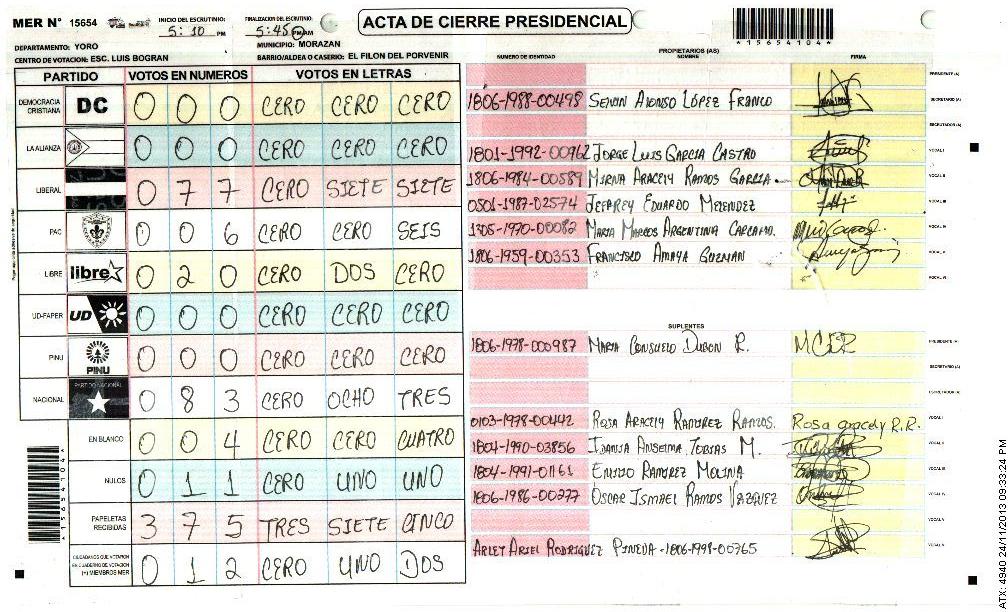 MER N° 15654
INICIO DEL ESCRUTINIO: 5:10 PM
FINALIZACION DEL ESCRUTINIO: 5:45 PM
ACTA DE CIERRE PRESIDENCIAL
*15654104*
DEPARTAMENTO: YORO
MUNICIPIO: MORAZAN
CENTRO DE VOTACION: ESC. LUIS BOGRAN
BARRIO/ALDEA O CASERIO: EL FILON DEL PORVENIR
PARTIDO VOTOS EN NUMEROS VOTOS EN LETRAS
DEMOCRACIA CRISTIANA DC 0 0 0 CERO CERO CERO
LA ALIANZA 0 0 0 CERO CERO CERO
LIBERAL 0 7 7 CERO SIETE SIETE
PAC 0 0 6 CERO CERO SEIS
LIBRE libre 0 2 0 CERO DOS CERO
UD-FAPER UD 0 0 0 CERO CERO CERO
PINU PINU 0 0 0 CERO CERO CERO
NACIONAL PARTIDO NACIONAL 0 8 3 CERO OCHO TRES
EN BLANCO 0 0 4 CERO CERO CUATRO
NULOS 0 1 1 CERO UNO UNO
PAPELETAS RECIBIDAS 3 7 5 TRES SIETE CINCO
CIUDADANOS QUE VOTARON EN CUADERNO DE VOTACION (+) MIEMBROS MER 0 1 2 CERO UNO DOS
*15654104*
PROPIETARIOS (AS)
NUMERO DE IDENTIDAD NOMBRE FIRMA
PRESIDENTE (A)
1806-1988-00498 SELVIN ALONSO LÓPEZ FRANCO SECRETARIO (A)
ESCRUTADOR (A)
1801-1992-00962 JORGE LUIS GARCIA CASTRO VOCAL I
1806-1984-00589 MIRNA ARACELY RAMOS GARCIA VOCAL II
0501-1987-02574 JEFFREY EDUARDO MELENDEZ VOCAL III
1305-1970-00082 MARIA MARCOS ARGENTINA CARCAMO. VOCAL IV
1806-1959-00353 FRANCISCO AMAYA GUZMAN VOCAL V
VOCAL VI
SUPLENTES
1806-1978-000987 MARIA CONSUELO DUBON R. MCDR PRESIDENTE (A)
SECRETARIO (A)
ESCRUTADOR (A)
0103-1978-00442 ROSA ARACELY RAMIREZ RAMOS. Rosa aracely R.R. VOCAL I
1804-1990-03856 IDANIA ANSELMA TOBIAS M. VOCAL II
1804-1991-01161 EMILIO RAMIREZ MOLINA VOCAL III
1806-1986-00277 OSCAR ISMAEL RAMOS VAZQUEZ VOCAL IV
VOCAL V
ARLET ARIEL RODRIGUEZ PINEDA -1806-1998-00765 VOCAL VI
ATX: 4940 24/11/2013 09:33:24 PM